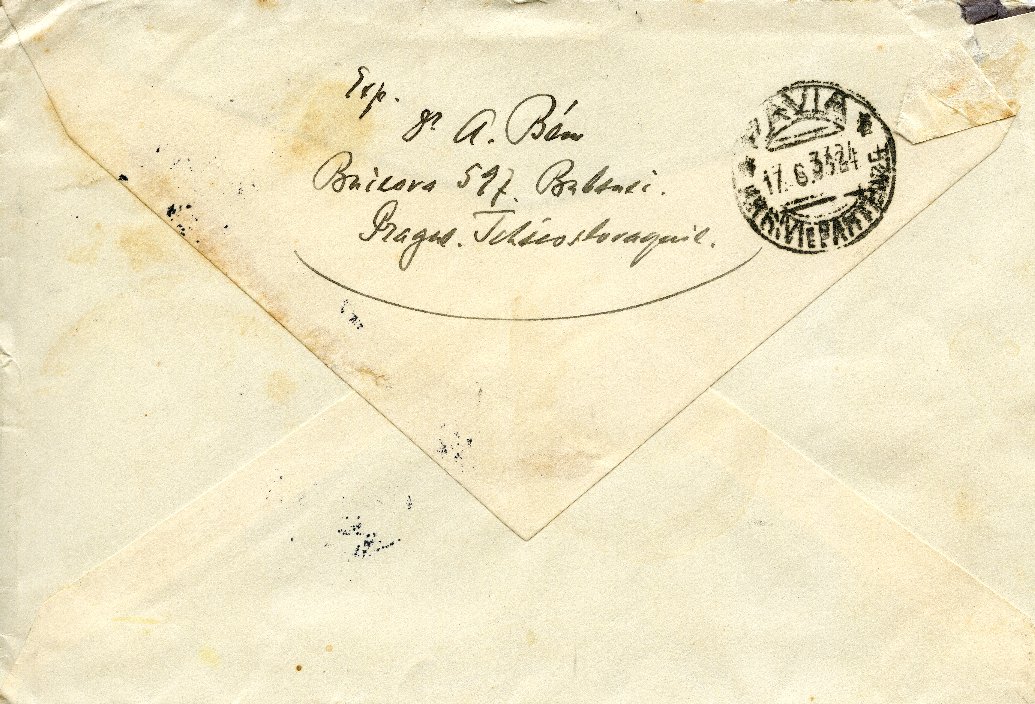 Exp.
Dr A. Bém
Bučcova 597. Bubeneč.
Prague. Tchécoslovaquie.
PAVIA
17.6.34 24
ARRIVI E PARTENZE